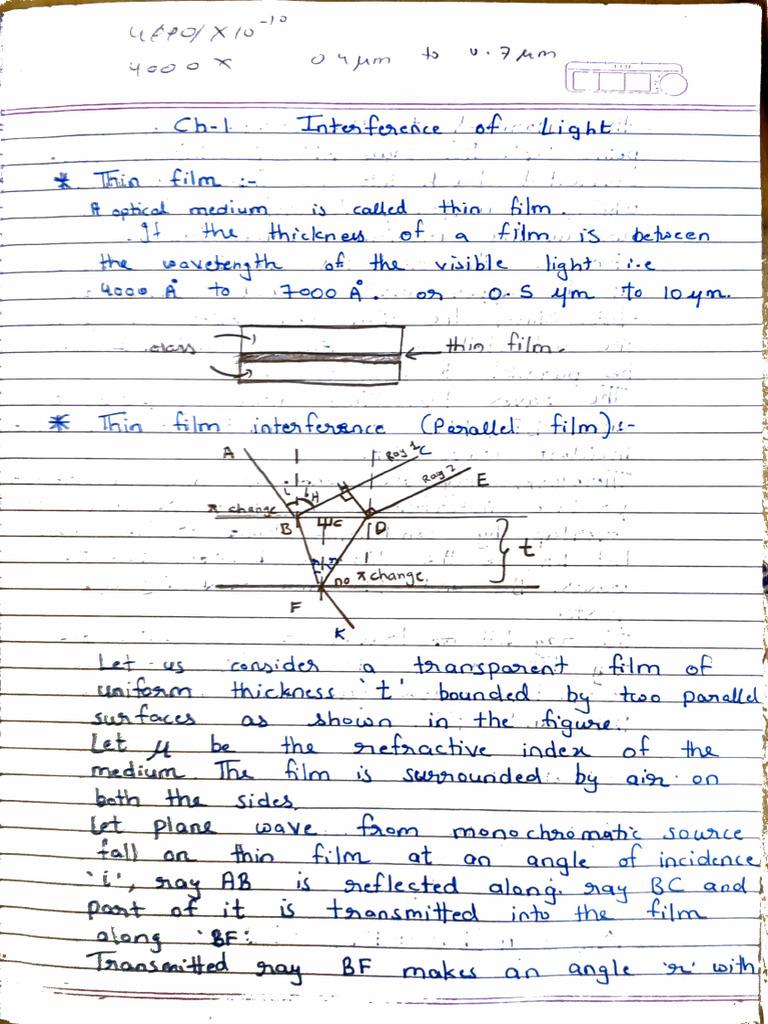 4000 x
0 4 µm to 0.7 µm
Ch-1 Interference of Light
* Thin film :-
A optical medium is called thin film.
If the thickness of a film is between
the wavetength of the visible light i.e
4000 Å to 7000 Å. or 0.5 µm to 10 µm.
glass
thin film.
* Thin film interference (Parallel film):-
A
Ray 1
C
Ray 2
E
i
i
H
π change
B
G
D
t
r
r
no π change
F
K
Let us consider a transparent film of
uniform thickness 't' bounded by two parallel
surfaces as shown in the figure.
Let µ be the refractive index of the
medium. The film is surrounded by air on
both the sides.
Let plane wave from monochromatic source
fall on thin film at an angle of incidence
'i', ray AB is reflected along ray BC and
part of it is transmitted into the film
along 'BF'.
Transmitted ray BF makes an angle 'r' with